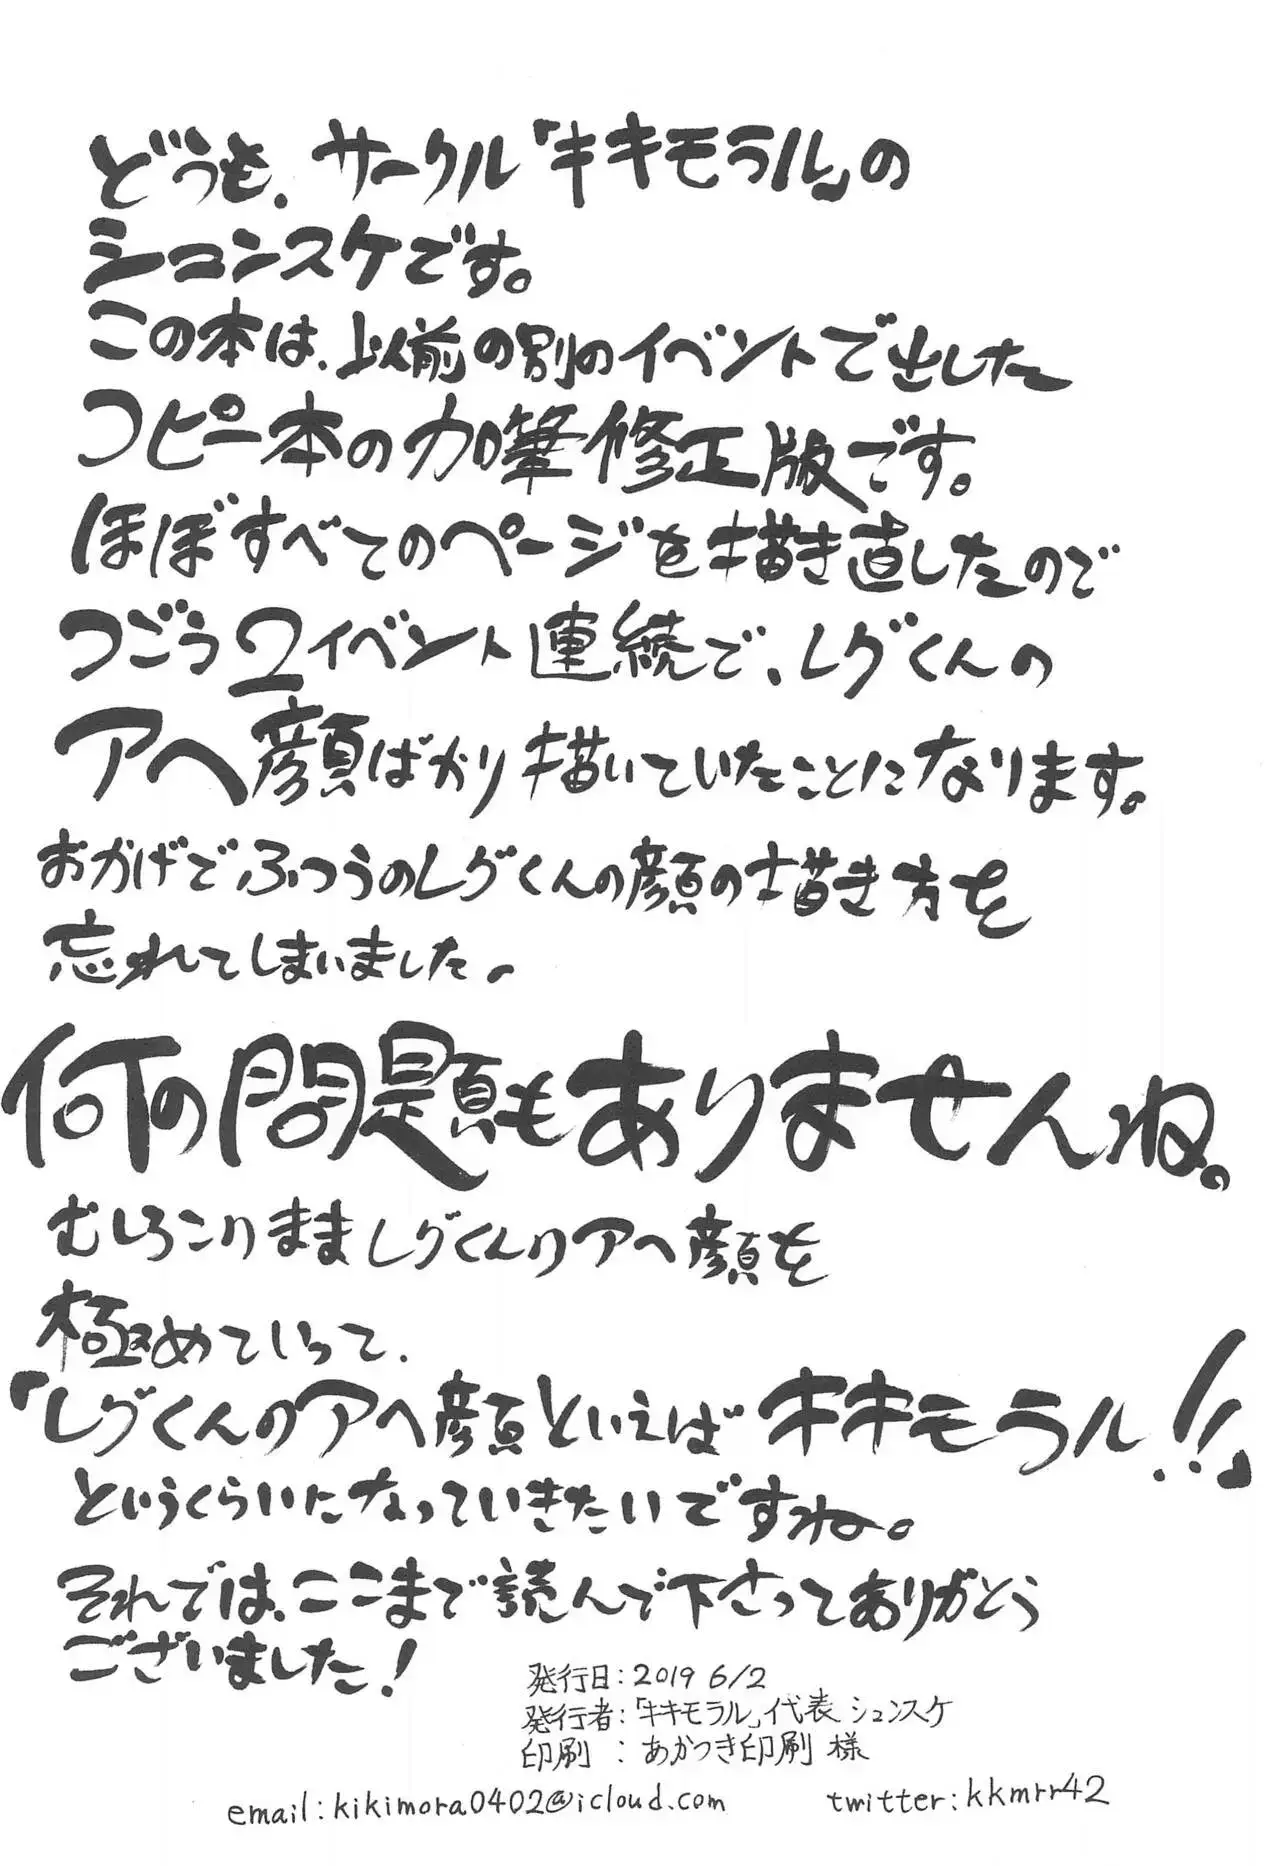 どうも、サークル「キキモラル」の
シュンスケです。
この本は、以前の別のイベントで出した
コピー本の加筆修正版です。
ほぼすべてのページを描き直したので
つごう2イベント連続で、レグくんの
アヘ顔ばかり描いていたことになります。
おかげでふつうのレグくんの顔の描き方を
忘れてしまいました。
何の問題もありませんね。
むしろこのままレグくんのアヘ顔を
極めていって、
「レグくんのアヘ顔といえばキキモラル!!」
というくらいになっていきたいですね。
それでは、ここまで読んで下さってありがとう
ございました!
発行日:2019 6/2
発行者:「キキモラル」代表 シュンスケ
印刷 : あかつき印刷 様
email:kikimora0402@icloud.com twitter:kkmrr42